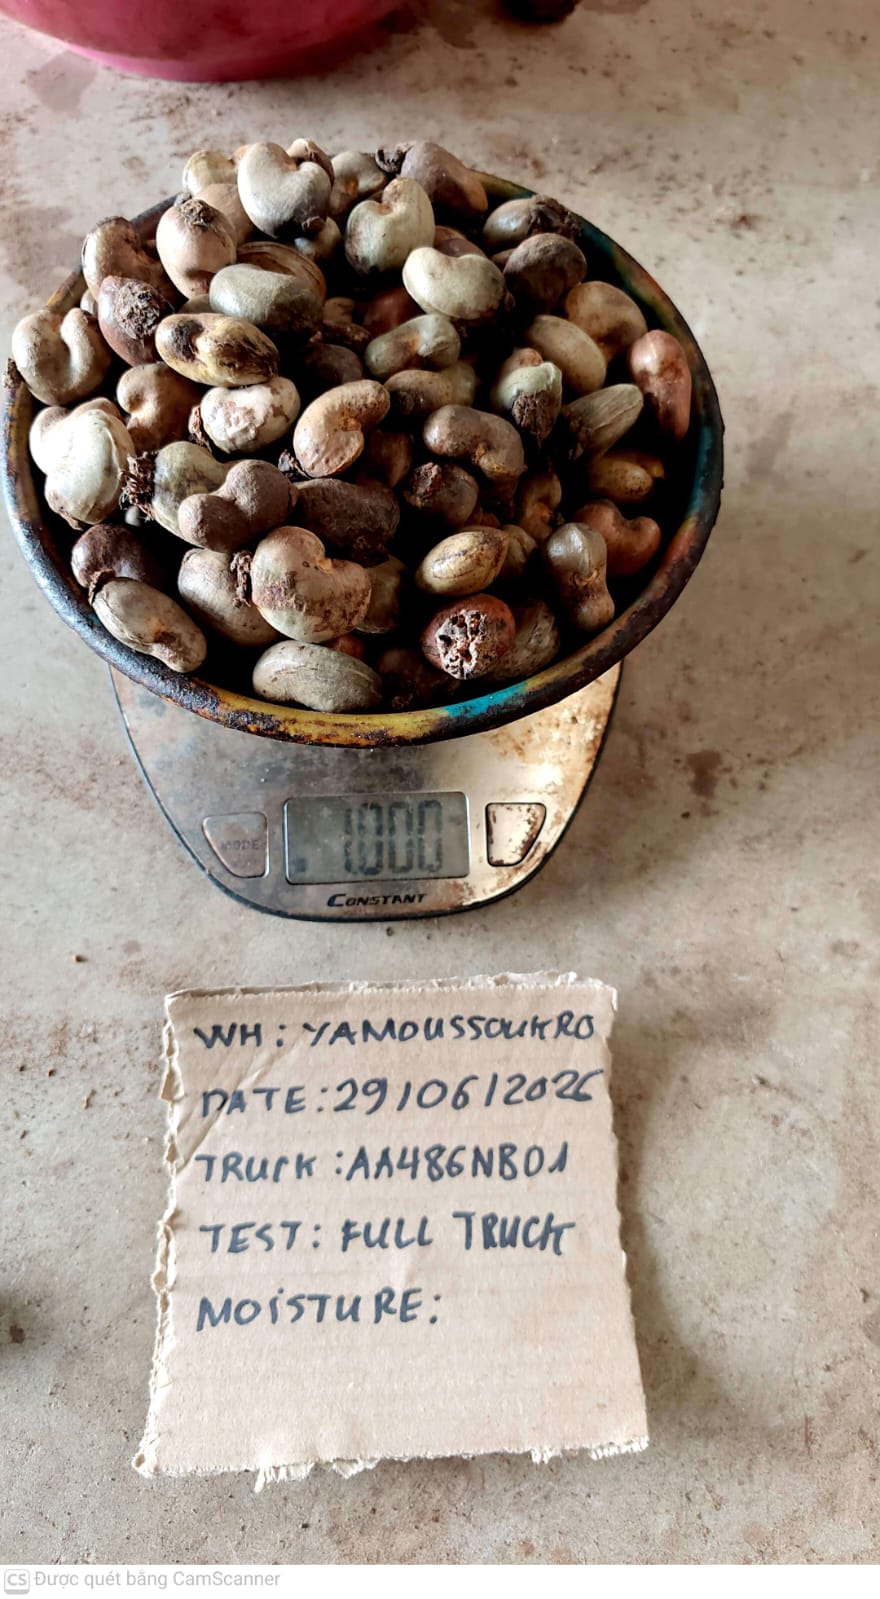 1.000
MODE
CONSTANT
WH : YAMOUSSOUKRO
DATE : 29/06/2026
TRUCK : AA486NB01
TEST : FULL TRUCK
MOiSTURE :
CS Được quét bằng CamScanner